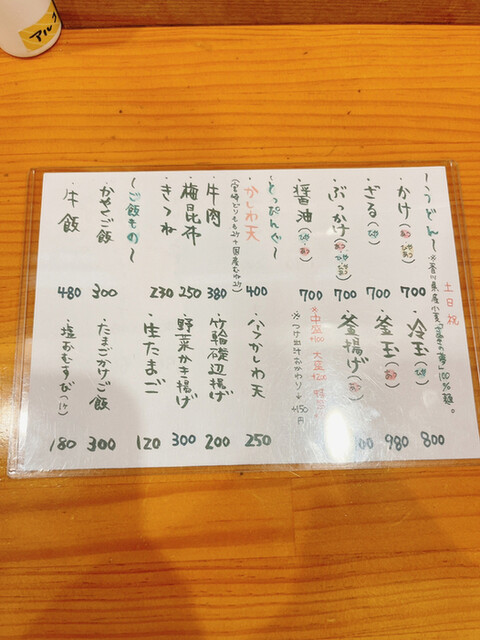 アルコ
〜うどん〜
※香川県産小麦「さぬきの夢」100%麺。
土日祝
・かけ(あつ ひやあつ ひや) 700
・ざる(ひや) 700
・ぶっかけ(あつ ひやあつ ひや) 700
・醤油(ひや・あつ) 700
・冷玉(ひや) 800
・釜玉(あつ) 980
・釜揚げ(あつ) 00
※中盛+100 大盛
※つけ出汁おかわり→+150円
〜とっぴんぐ〜
・かしわ天 400
・牛肉 380
・梅昆布 250
・きつね 230
・ハーフかしわ天 250
・竹輪磯辺揚げ 200
・野菜かき揚げ 300
・生たまご 120
〜ご飯もの〜
・かやくご飯 300
・牛飯 480
・たまごかけご飯 300
・塩おむすび(1ケ) 180